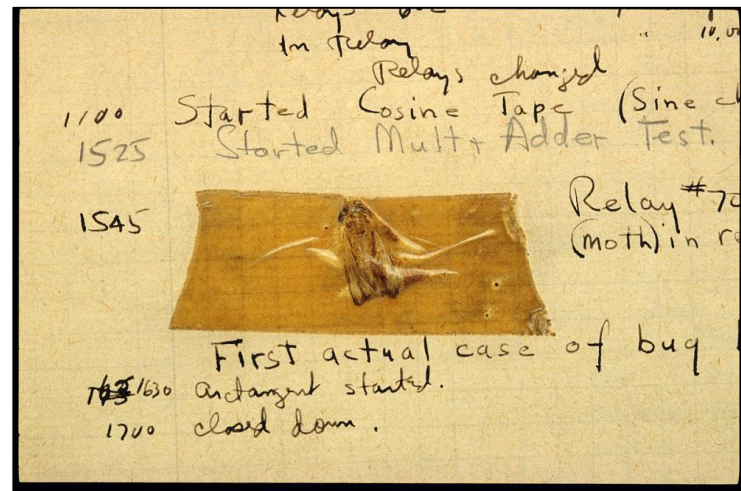 Relays
In Relay
" 10,00
Relays changed
1100 Started Cosine Tape (Sine ch
1525 Started Mult + Adder Test.
1545 Relay #70
(moth) in re
First actual case of bug b
1630 arctangent started.
1700 closed down.